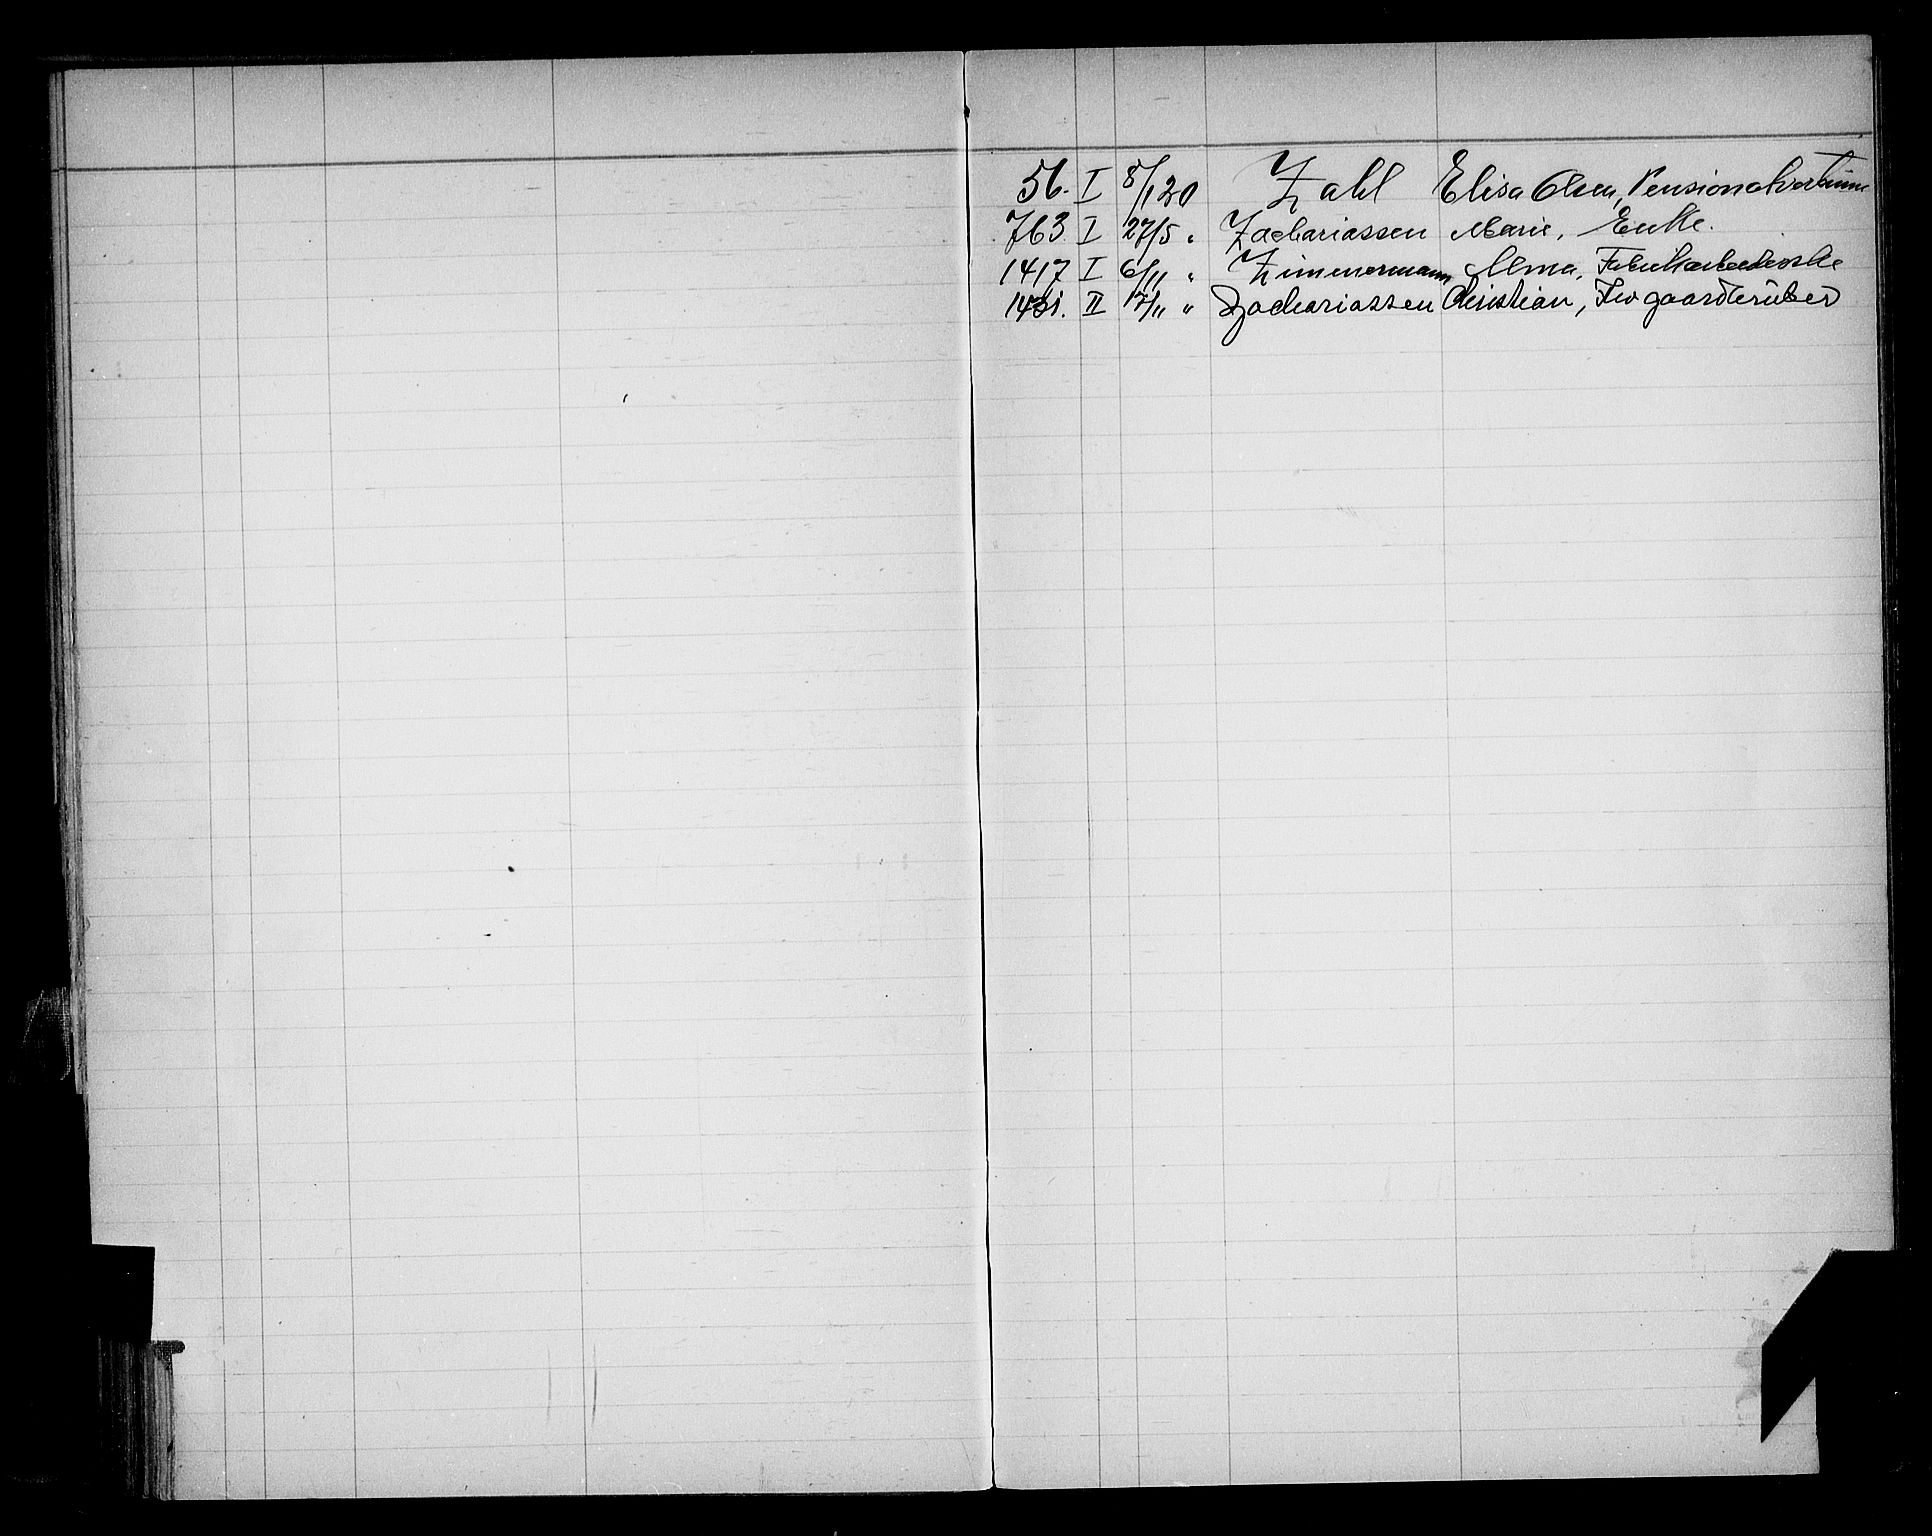 56. I 8/1 20 Zahl Elisa Olsen, Pensionatvertinne
763 I 27/5 " Zachariassen Marie, Enke.
1417 I 6/11 " Zimmermann Alma, Fabrikarbeiderske
II 17/11 " Zachariassen Christian, Fhv gaardbruker